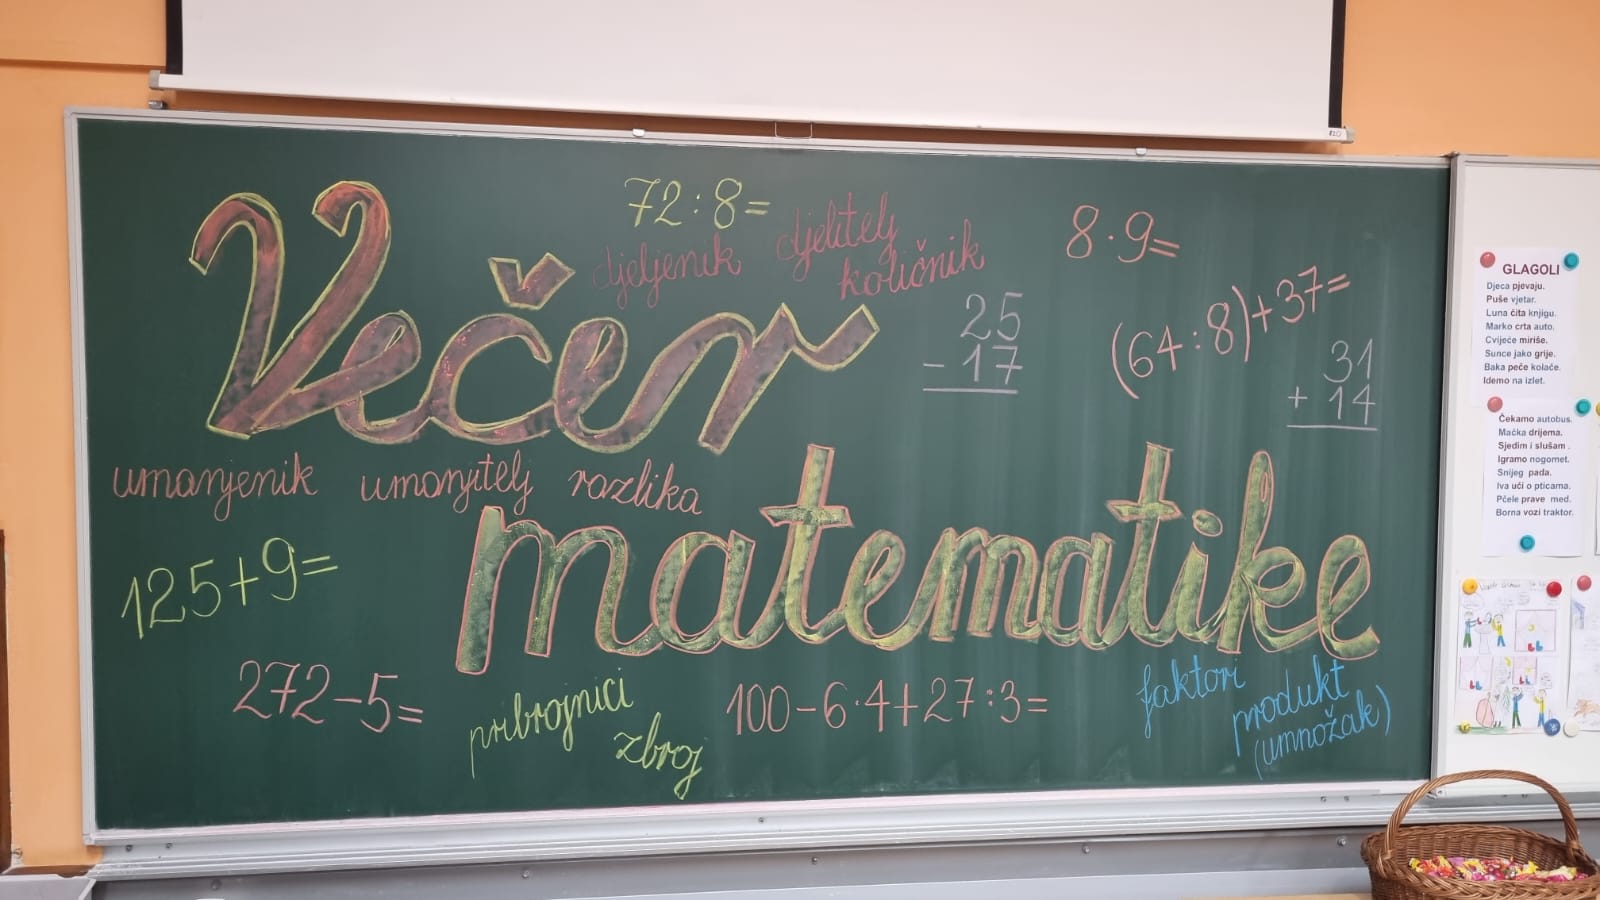 72:8=
djeljenik djelitelj
količnik
8·9=
Večer
25
- 17
(64:8)+37=
31
+ 14
umanjenik umanjitelj razlika
matematike
125+9=
272-5=
pribrojnici
zbroj
100-6·4+27:3=
faktori
produkt
(umnožak)
GLAGOLI
Djeca pjevaju.
Puše vjetar.
Luna čita knjigu.
Marko crta auto.
Cvijeće miriše.
Sunce jako grije.
Baka peče kolače.
Idemo na izlet.
Čekamo autobus.
Mačka drijema.
Sjedim i slušam .
Igramo nogomet.
Snijeg pada.
Iva uči o pticama.
Pčele prave med.
Borna vozi traktor.